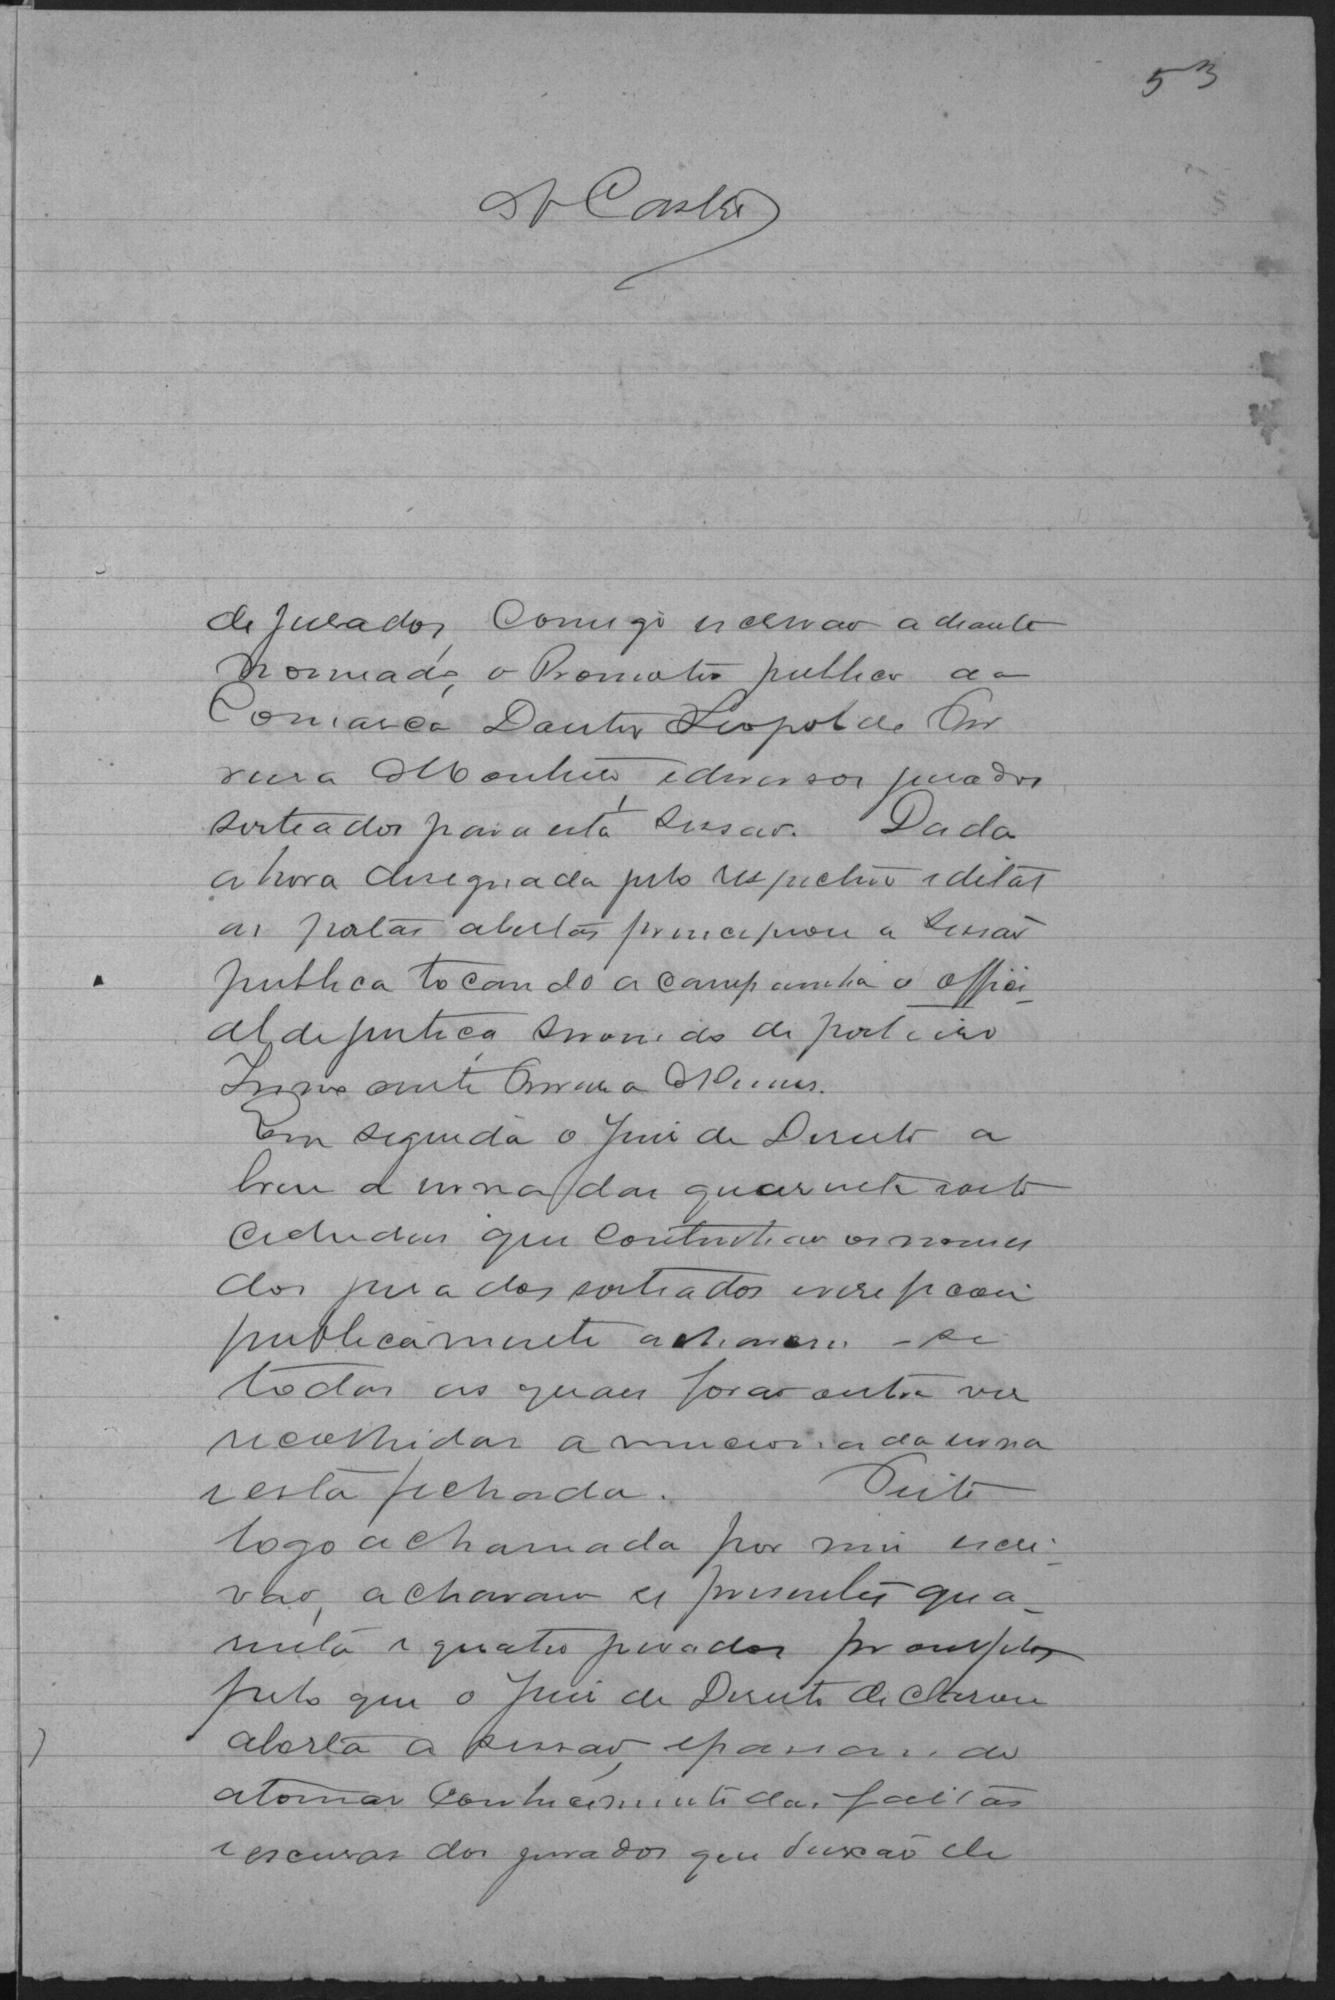 53
Castro
de jurados, comigo escrivão adiante
nomeado, o Promotor publico da
Comarca Doutor Leopoldo
Monteiro, e diversos jurados
sorteados para esta sessão. Dada
a hora designada pelo respectivo edital
as portas abertas principiou a sessão
publica tocando a campainha o offici-
al de justiça servindo de porteiro
Innocente Correia Nunes.
Em seguida o Juiz de Direito a
briu a urna das quarenta e oito
cedulas que continhão os nomes
dos jurados sorteados e
publicamente acharam-se
todas as quaes forão outra vez
recolhidas a mencionada urna
e esta fechada. Feita
logo a chamada por mim escri-
vão, acharam se presentes qua-
renta e quatro jurados promptos
pelo que o Juiz de Direito declarou
aberta a sessão, e passando
a tomar conhecimento das faltas
e escusas dos jurados que deixão de